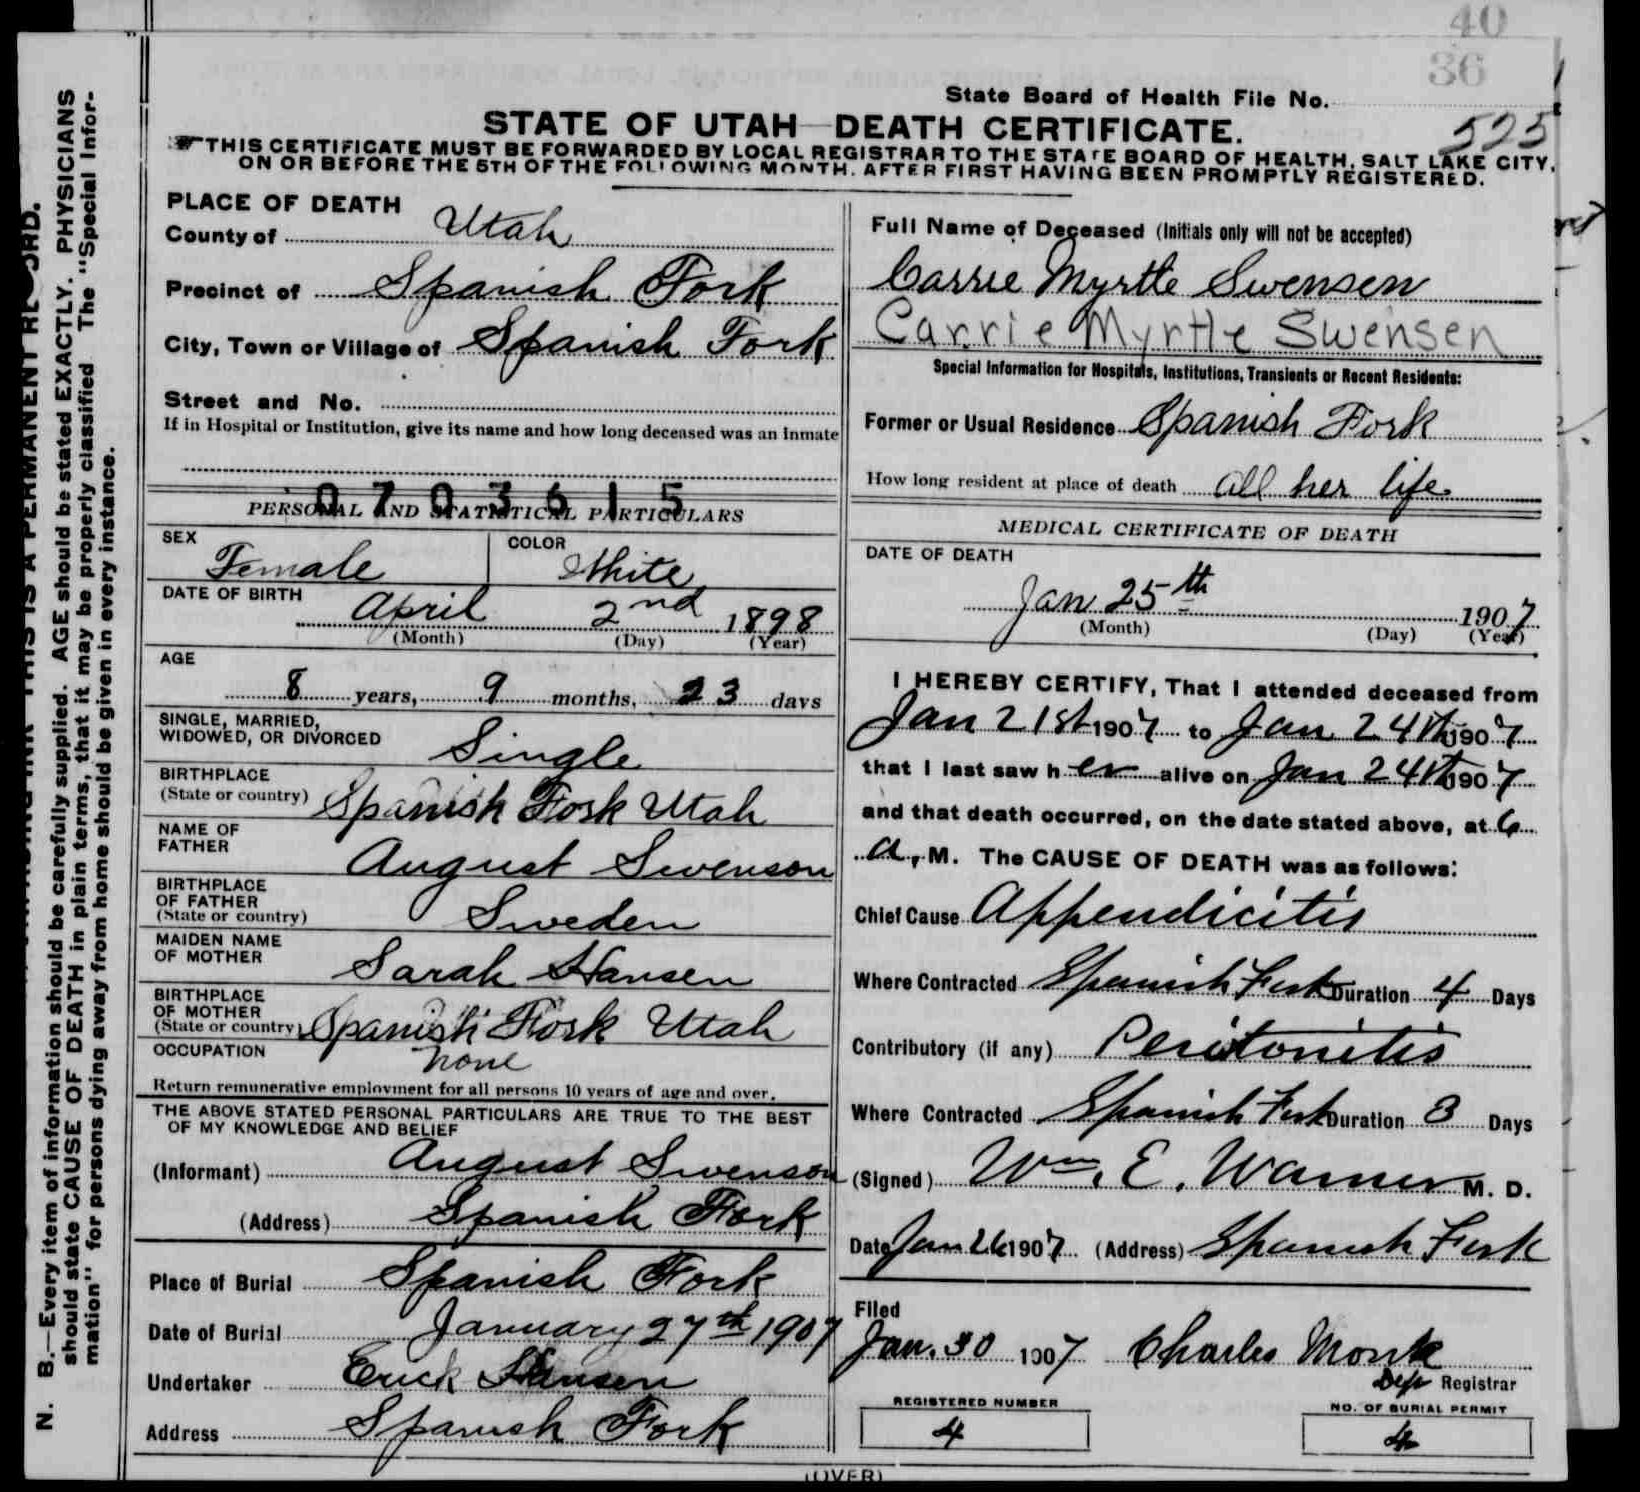 40
36
State Board of Health File No.
525
STATE OF UTAH—DEATH CERTIFICATE.
THIS CERTIFICATE MUST BE FORWARDED BY LOCAL REGISTRAR TO THE STATE BOARD OF HEALTH, SALT LAKE CITY,
ON OR BEFORE THE 5TH OF THE FOLLOWING MONTH, AFTER FIRST HAVING BEEN PROMPTLY REGISTERED.
N. B.—Every item of information should be carefully supplied. AGE should be stated EXACTLY. PHYSICIANS
should state CAUSE OF DEATH in plain terms, that it may be properly classified The "Special Infor-
mation" for persons dying away from home should be given in every instance.
THIS IS A PERMANENT RECORD.
PLACE OF DEATH
County of Utah
Precinct of Spanish Fork
City, Town or Village of Spanish Fork
Street and No.
If in Hospital or Institution, give its name and how long deceased was an inmate
0703615
PERSONAL AND STATISTICAL PARTICULARS
SEX Female COLOR White
DATE OF BIRTH April 2nd 1898
(Month) (Day) (Year)
AGE
8 years, 9 months, 23 days
SINGLE, MARRIED,
WIDOWED, OR DIVORCED Single
BIRTHPLACE
(State or country) Spanish Fork Utah
NAME OF
FATHER August Swenson
BIRTHPLACE
OF FATHER
(State or country) Sweden
MAIDEN NAME
OF MOTHER Sarah Hansen
BIRTHPLACE
OF MOTHER
(State or country) Spanish Fork Utah
OCCUPATION none
Return remunerative employment for all persons 10 years of age and over.
THE ABOVE STATED PERSONAL PARTICULARS ARE TRUE TO THE BEST
OF MY KNOWLEDGE AND BELIEF
(Informant) August Swenson
(Address) Spanish Fork
Place of Burial Spanish Fork
Date of Burial January 27th 1907
Undertaker Erick Hansen
Address Spanish Fork
Full Name of Deceased (Initials only will not be accepted)
Carrie Myrtle Swensen
Carrie Myrtle Swensen
Special Information for Hospitals, Institutions, Transients or Recent Residents:
Former or Usual Residence Spanish Fork
How long resident at place of death all her life
MEDICAL CERTIFICATE OF DEATH
DATE OF DEATH
Jan 25th 1907
(Month) (Day) (Year)
I HEREBY CERTIFY, That I attended deceased from
Jan 21st 1907 to Jan 24th 1907
that I last saw her alive on Jan 24th 1907
and that death occurred, on the date stated above, at 6
a, M. The CAUSE OF DEATH was as follows:
Chief Cause Appendicitis
Where Contracted Spanish Fork Duration 4 Days
Contributory (if any) Peritonitis
Where Contracted Spanish Fork Duration 3 Days
(Signed) Wm. E. Warner M. D.
Date Jan 26 1907 (Address) Spanish Fork
Filed
Jan. 30 1907 Charles Monk
Dep Registrar
REGISTERED NUMBER
4
NO. OF BURIAL PERMIT
4
(OVER)